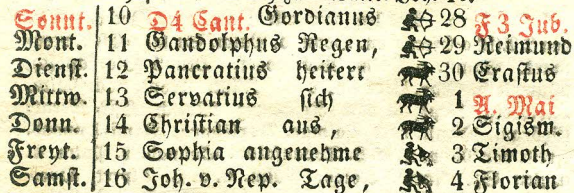 Sonnt. 10 D4 Cant. Gordianus 28 F 3 Jub.
Mont. 11 Gandolphus Regen, 29 Reimund
Dienst. 12 Pancratius heitert 30 Erastus
Mittw. 13 Servatius sich 1 A. Mai
Donn. 14 Christian aus, 2 Sigism.
Freyt. 15 Sophia angenehme 3 Timoth
Samst. 16 Joh. v. Nep. Tage, 4 Florian